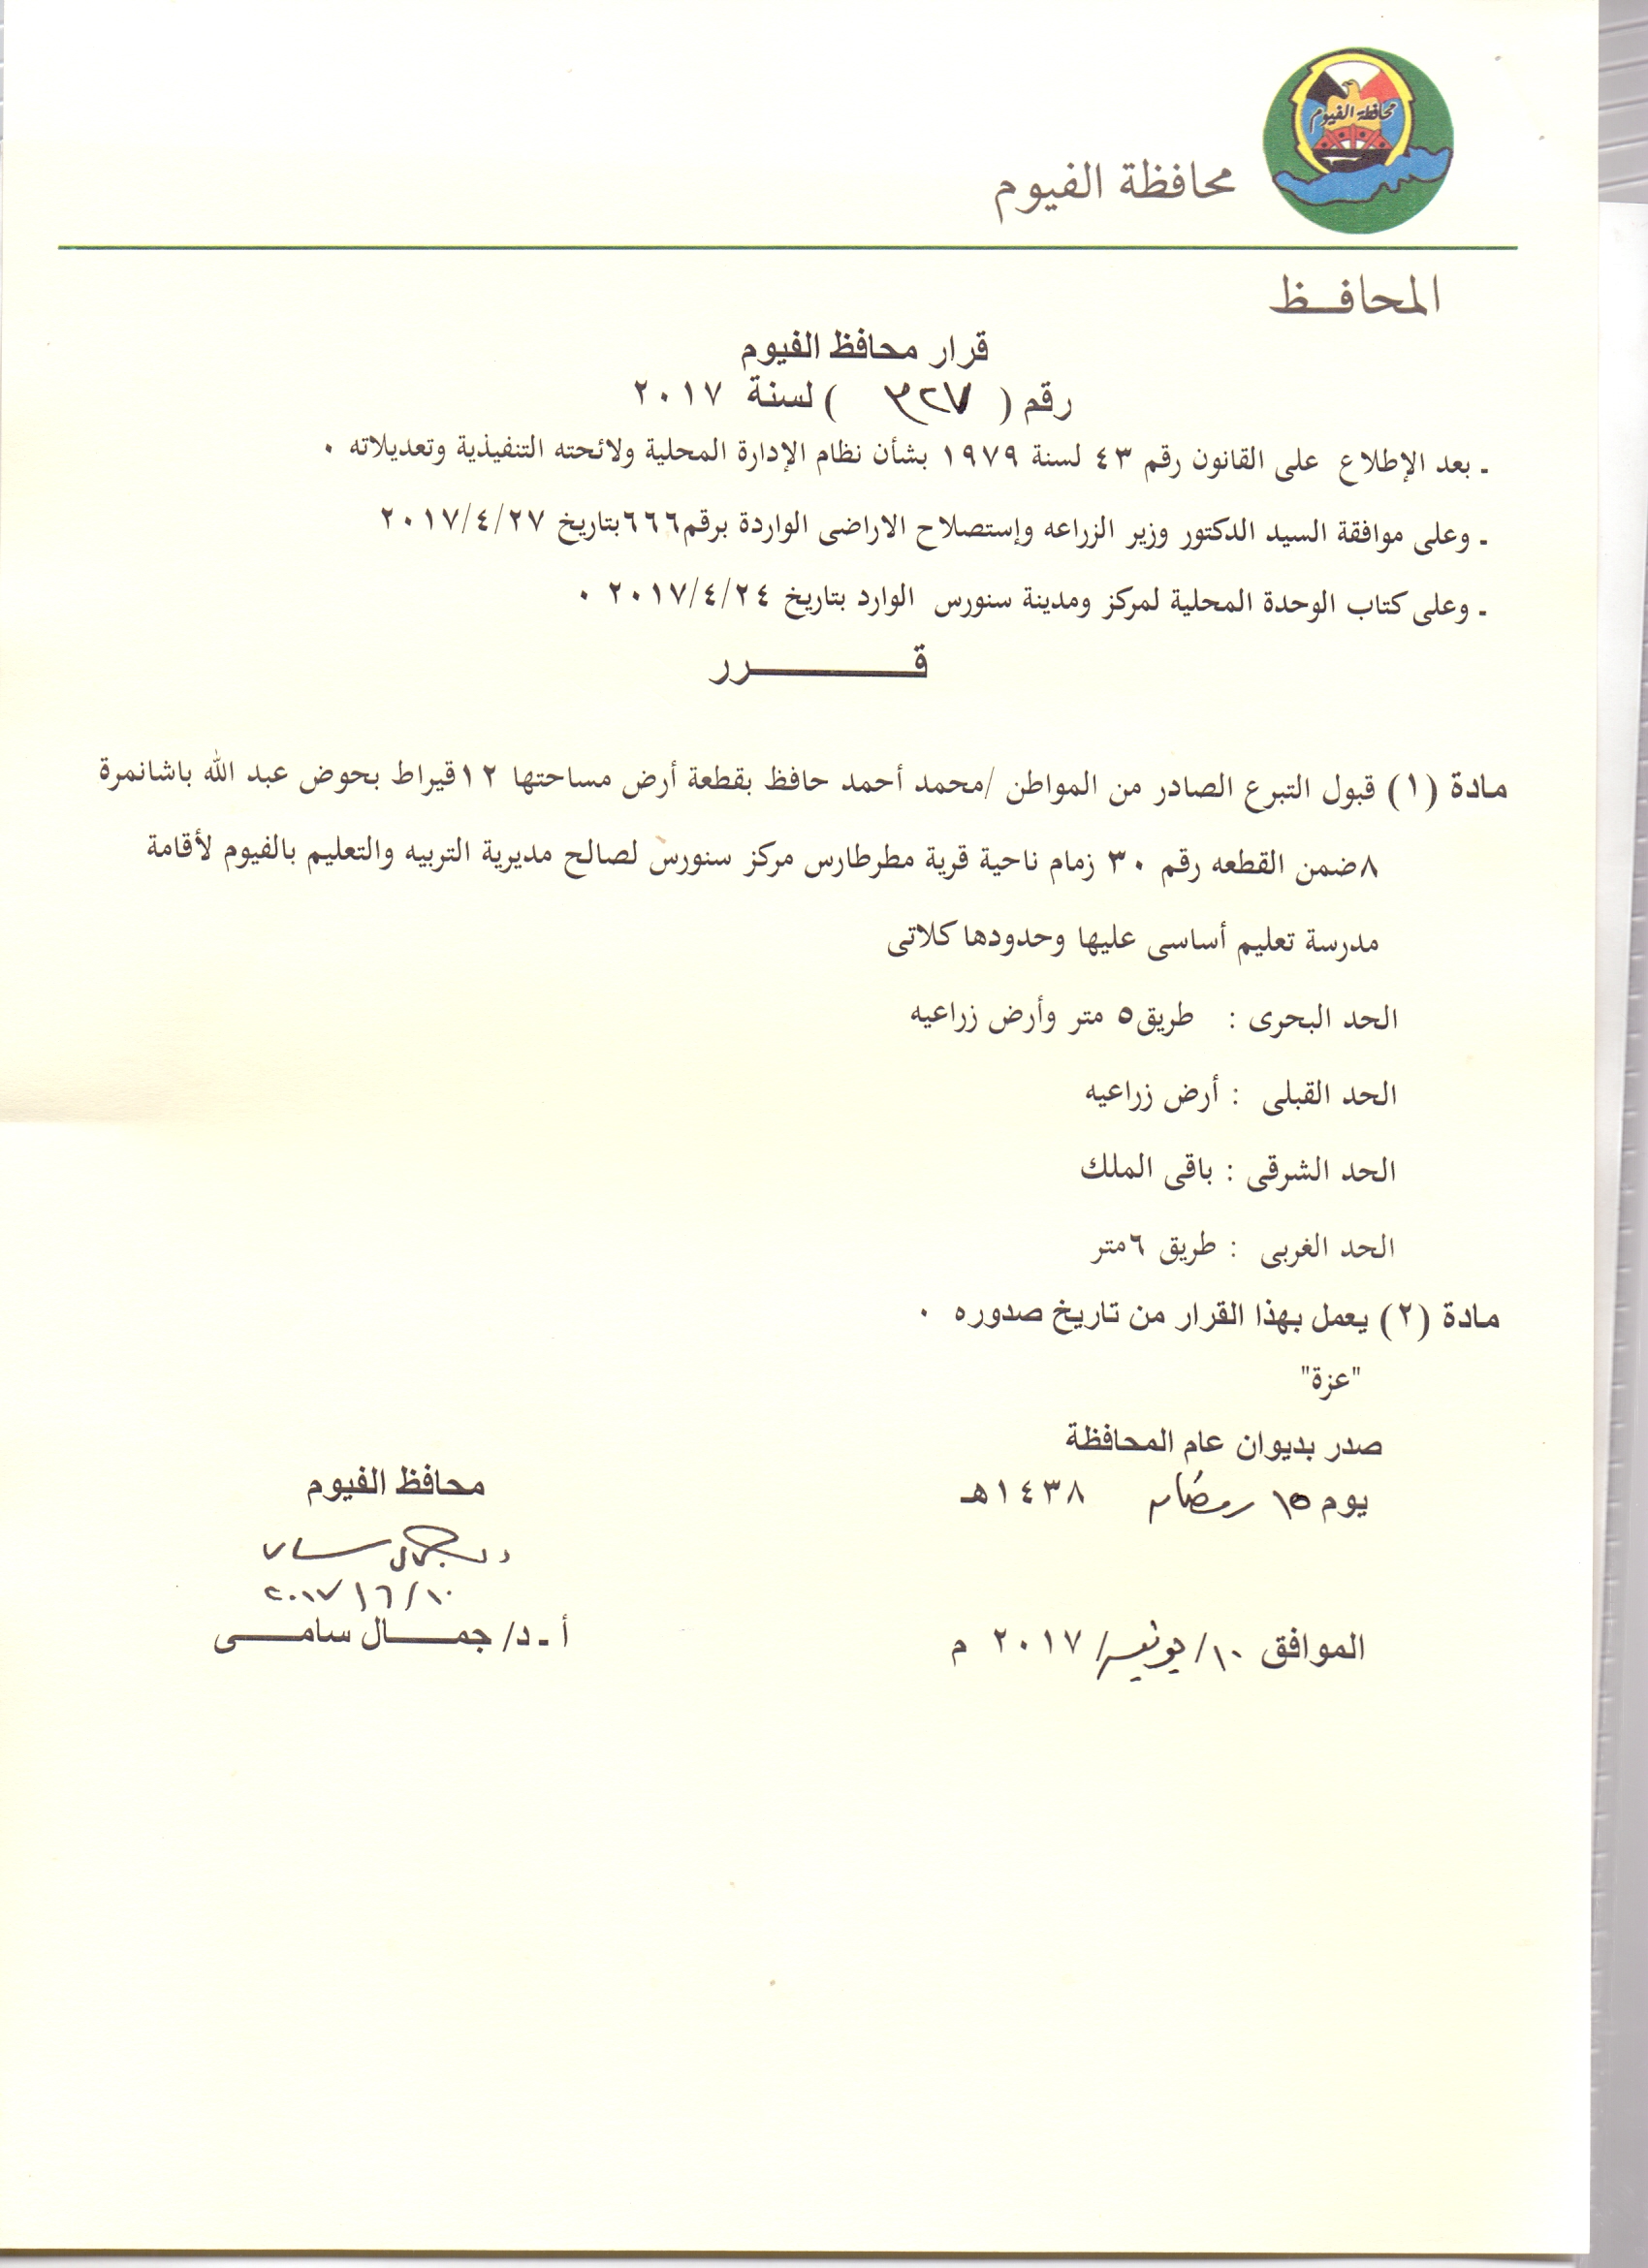 محافظة الفيوم
محافظة الفيوم
المحافــظ
قرار محافظ الفيوم
رقم ( ٣٢٧ ) لسنة ٢٠١٧
- بعد الإطلاع على القانون رقم ٤٣ لسنة ١٩٧٩ بشأن نظام الإدارة المحلية ولائحته التنفيذية وتعديلاته ٠
- وعلى موافقة السيد الدكتور وزير الزراعه وإستصلاح الاراضى الواردة برقم٦٦٦بتاريخ ٢٠١٧/٤/٢٧
- وعلى كتاب الوحدة المحلية لمركز ومدينة سنورس الوارد بتاريخ ٢٠١٧/٤/٢٤ ٠
قــــــــــرر
مادة (١) قبول التبرع الصادر من المواطن /محمد أحمد حافظ بقطعة أرض مساحتها ١٢قيراط بحوض عبد الله باشانمرة
٨ضمن القطعه رقم ٣٠ زمام ناحية قرية مطرطارس مركز سنورس لصالح مديرية التربيه والتعليم بالفيوم لأقامة
مدرسة تعليم أساسى عليها وحدودها كلاتى
الحد البحرى : طريق٥ متر وأرض زراعيه
الحد القبلى : أرض زراعيه
الحد الشرقى : باقى الملك
الحد الغربى : طريق ٦متر
مادة (٢) يعمل بهذا القرار من تاريخ صدوره ٠
"عزة"
صدر بديوان عام المحافظة
يوم ١٥ رمضان ١٤٣٨هـ
الموافق ١٠/يونيه/ ٢٠١٧ م
محافظ الفيوم
٢٠١٧/٦/١٠
أ ـ د/ جمـــال سامـــى